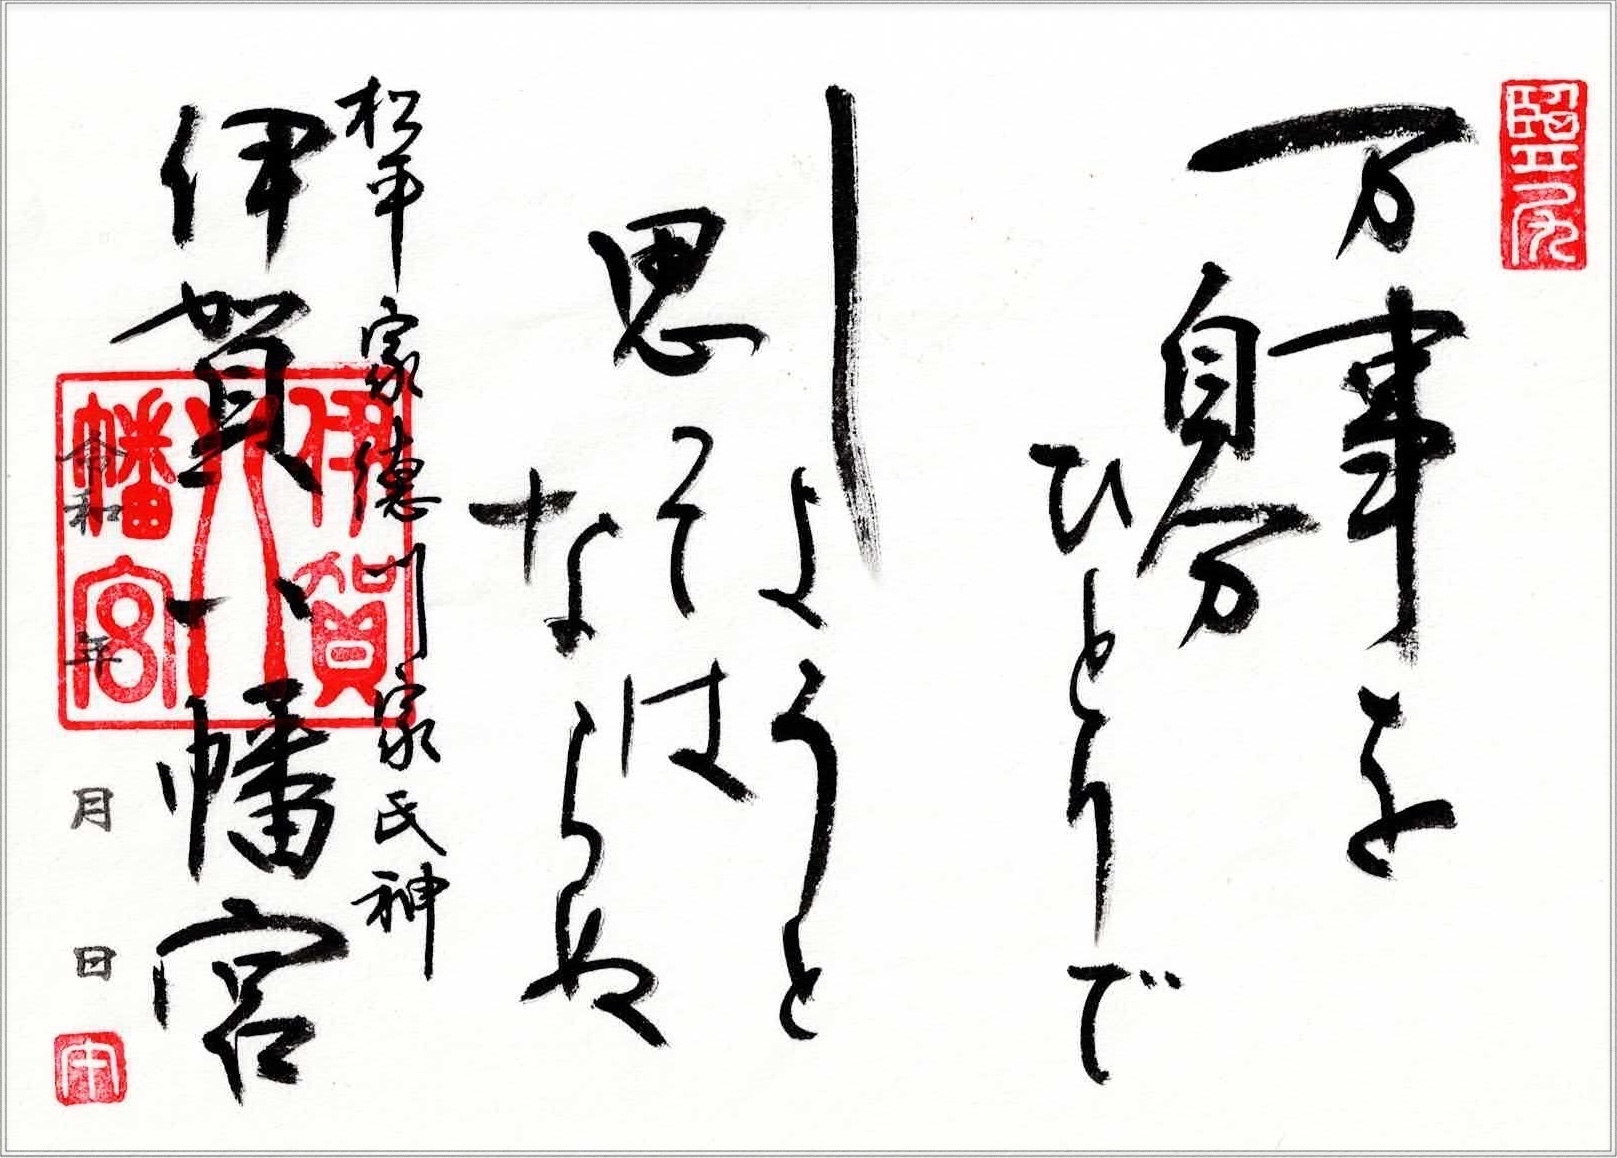 万事を
自分
ひとりで
しようと
思ては
ならぬ
松平家徳川家氏神
伊賀八幡宮
伊賀八幡宮
令和 年 月 日